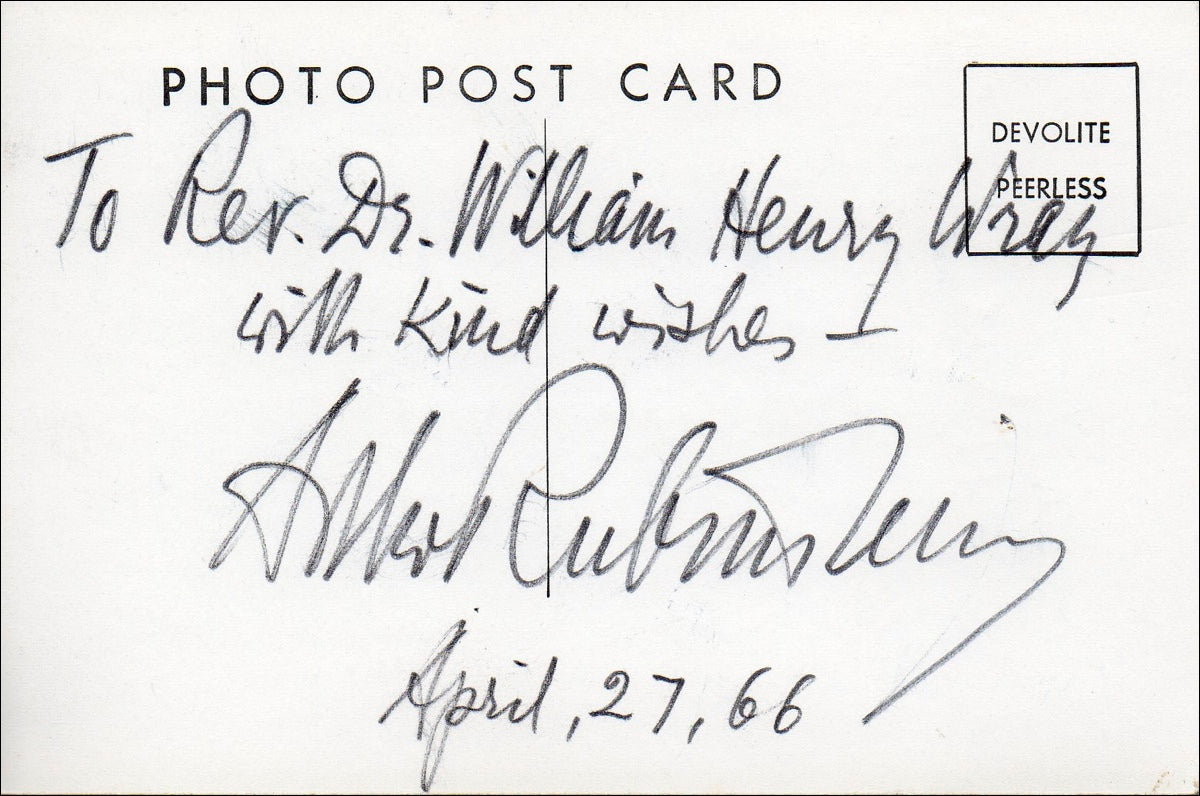 PHOTO POST CARD
DEVOLITE
PEERLESS
To Rev. Dr. William Henry Wray
with kind wishes –
Arthur Rubinstein
April, 27, 66